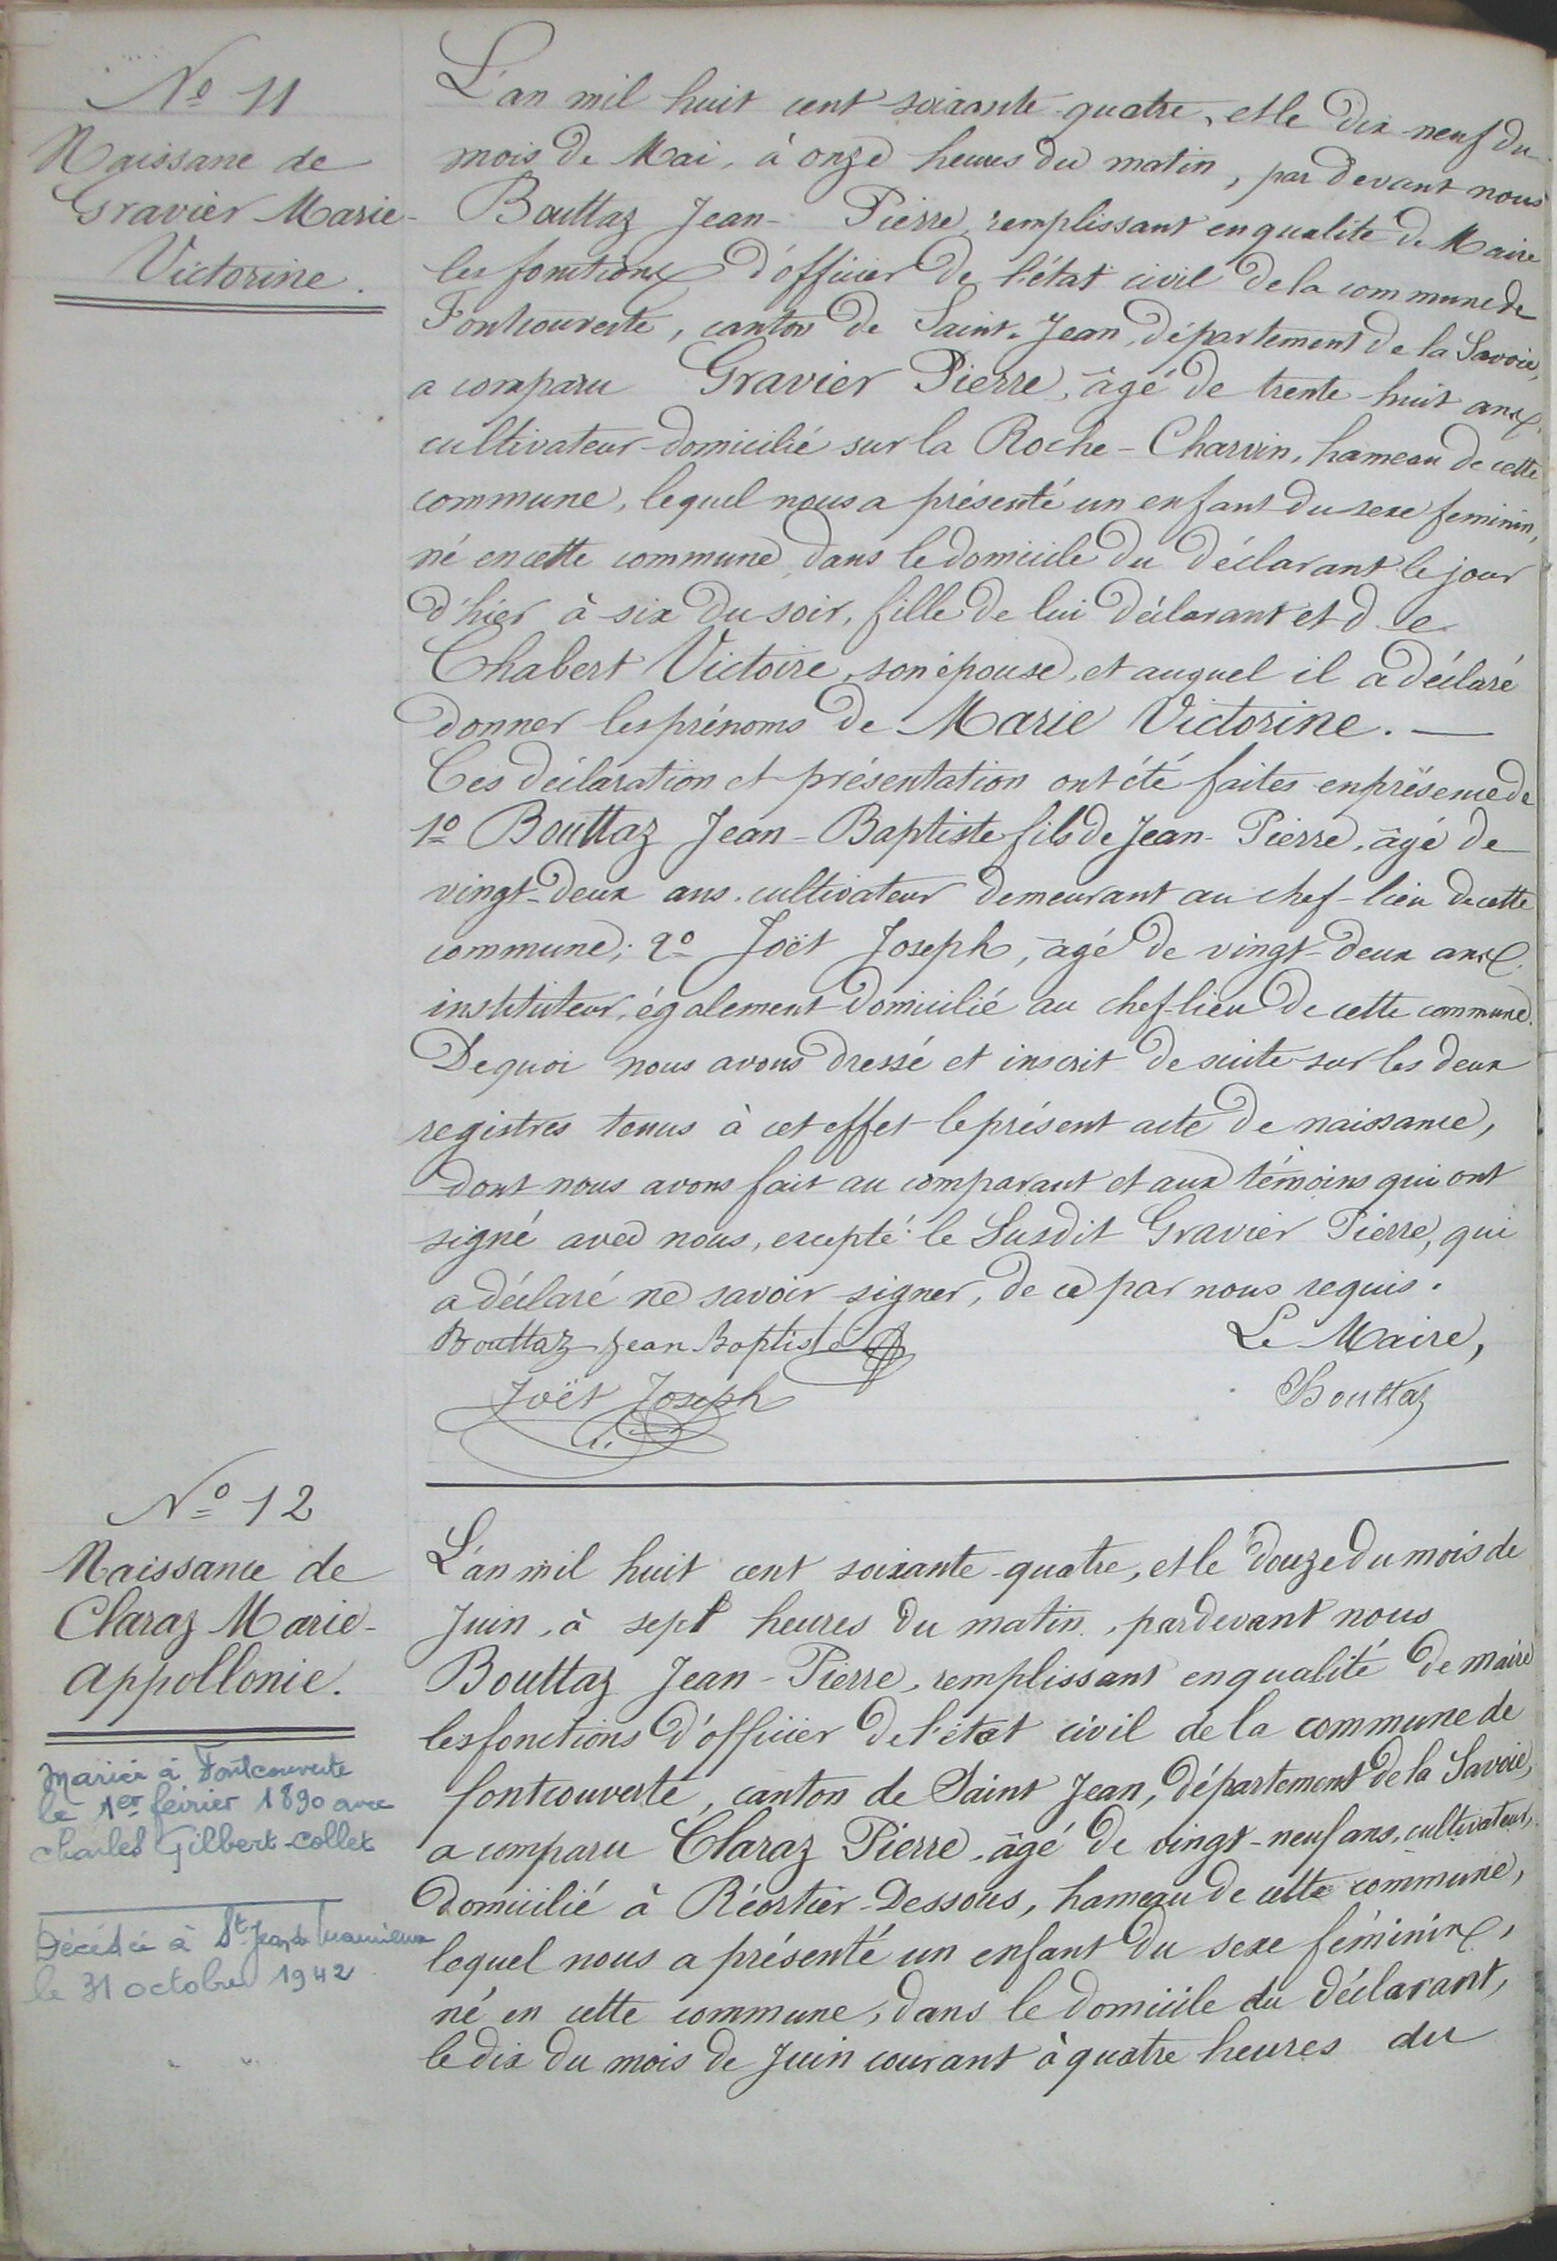 N° 11
Naissane de
Gravier Marie-
Victorine.
L'an mil huit cent soixante-quatre, et le dix-neuf du
mois de Mai, à onze heures du matin, par devant nous
Bouttaz Jean-Pierre, remplissant en qualité de Maire
les fonctions d'officier de l'état civil de la commune de
Fontcouverte, canton de Saint-Jean, département de la Savoie,
a comparu Gravier Pierre, âgé de trente-huit ans,
cultivateur domicilié sur la Roche-Charvin, hameau de cette
commune, lequel nous a présenté un enfant du sexe feminin,
né en cette commune, dans le domicile du déclarant le jour
d'hier à six du soir, fille de lui déclarant et de
Chabert Victoire, son épouse, et auquel il a déclaré
donner les prénoms de Marie Victorine. —
Ces déclaration et présentation ont été faites en présence de
1° Bouttaz Jean-Baptiste fils de Jean-Pierre, âgé de
vingt-deux ans, cultivateur demeurant au chef-lieu de cette
commune; 2° Joët Joseph, âgé de vingt-deux ans
instituteur, également domicilié au chef-lieu de cette commune.
De quoi nous avons dressé et inscrit de suite sur les deux
registres tenus à cet effet le présent acte de naissance,
dont nous avons fait au comparant et aux témoins qui ont
signé avec nous, excepté le Susdit Gravier Pierre, qui
a déclaré ne savoir signer, de ce par nous requis.
Bouttaz Jean Baptiste
Le Maire,
Joët Joseph
Bouttaz
N° 12
Naissance de
Claraz Marie-
Appollonie.
Mariée à Fontcouverte
le 1er février 1890 avec
Charles Gilbert-Collet
Décédée à St Jean de Maurienne
le 31 octobre 1942
L'an mil huit cent soixante-quatre, et le douze du mois de
Juin, à sept heures du matin, pardevant nous
Bouttaz Jean-Pierre, remplissant en qualité de maire
les fonctions d'officier de l'état civil de la commune de
fontcouverte, canton de Saint Jean, département de la Savoie,
a comparu Claraz Pierre, âgé de vingt-neuf ans, cultivateur,
domicilié à Réortier-Dessous, hameau de cette commune,
lequel nous a présenté un enfant du sexe féminin,
né en cette commune, dans le domicile du déclarant,
le dix du mois de Juin courant à quatre heures du